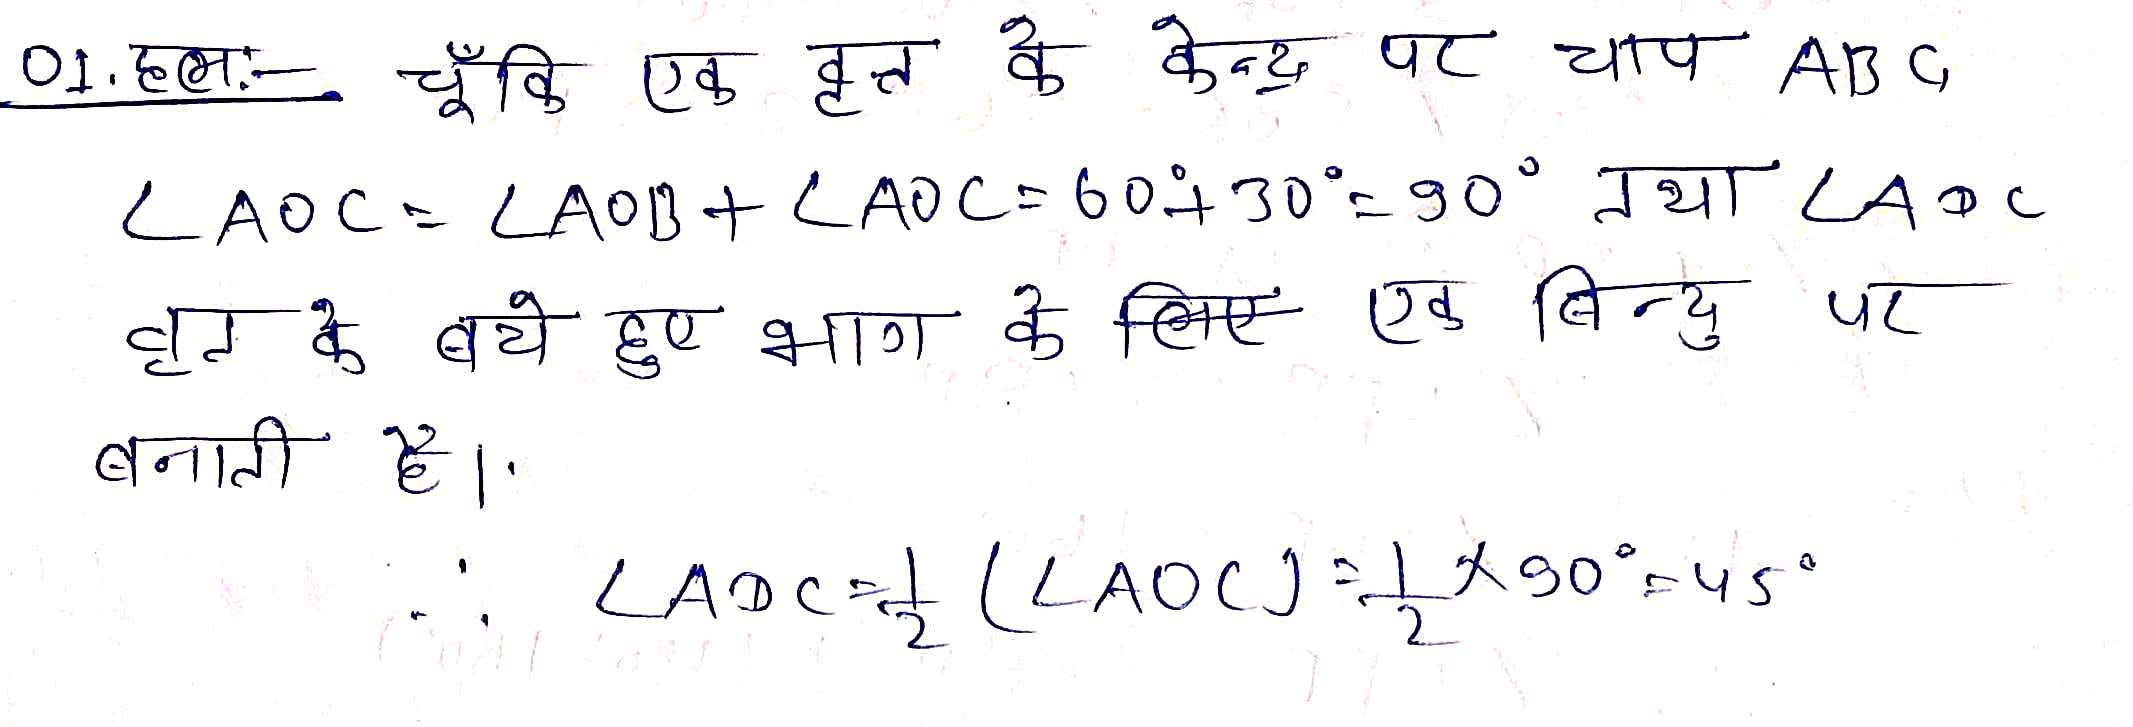 01. हल:- चूँकि एक वृत्त के केन्द्र पर चाप ABC
∠AOC = ∠AOB + ∠AOC = 60° + 30° = 90° तथा ∠ADC
वृत के बचे हुए भाग के लिए एक बिन्दु पर
बनाती है।
∴ ∠ADC = 1/2 (∠AOC) = 1/2 × 90° = 45°